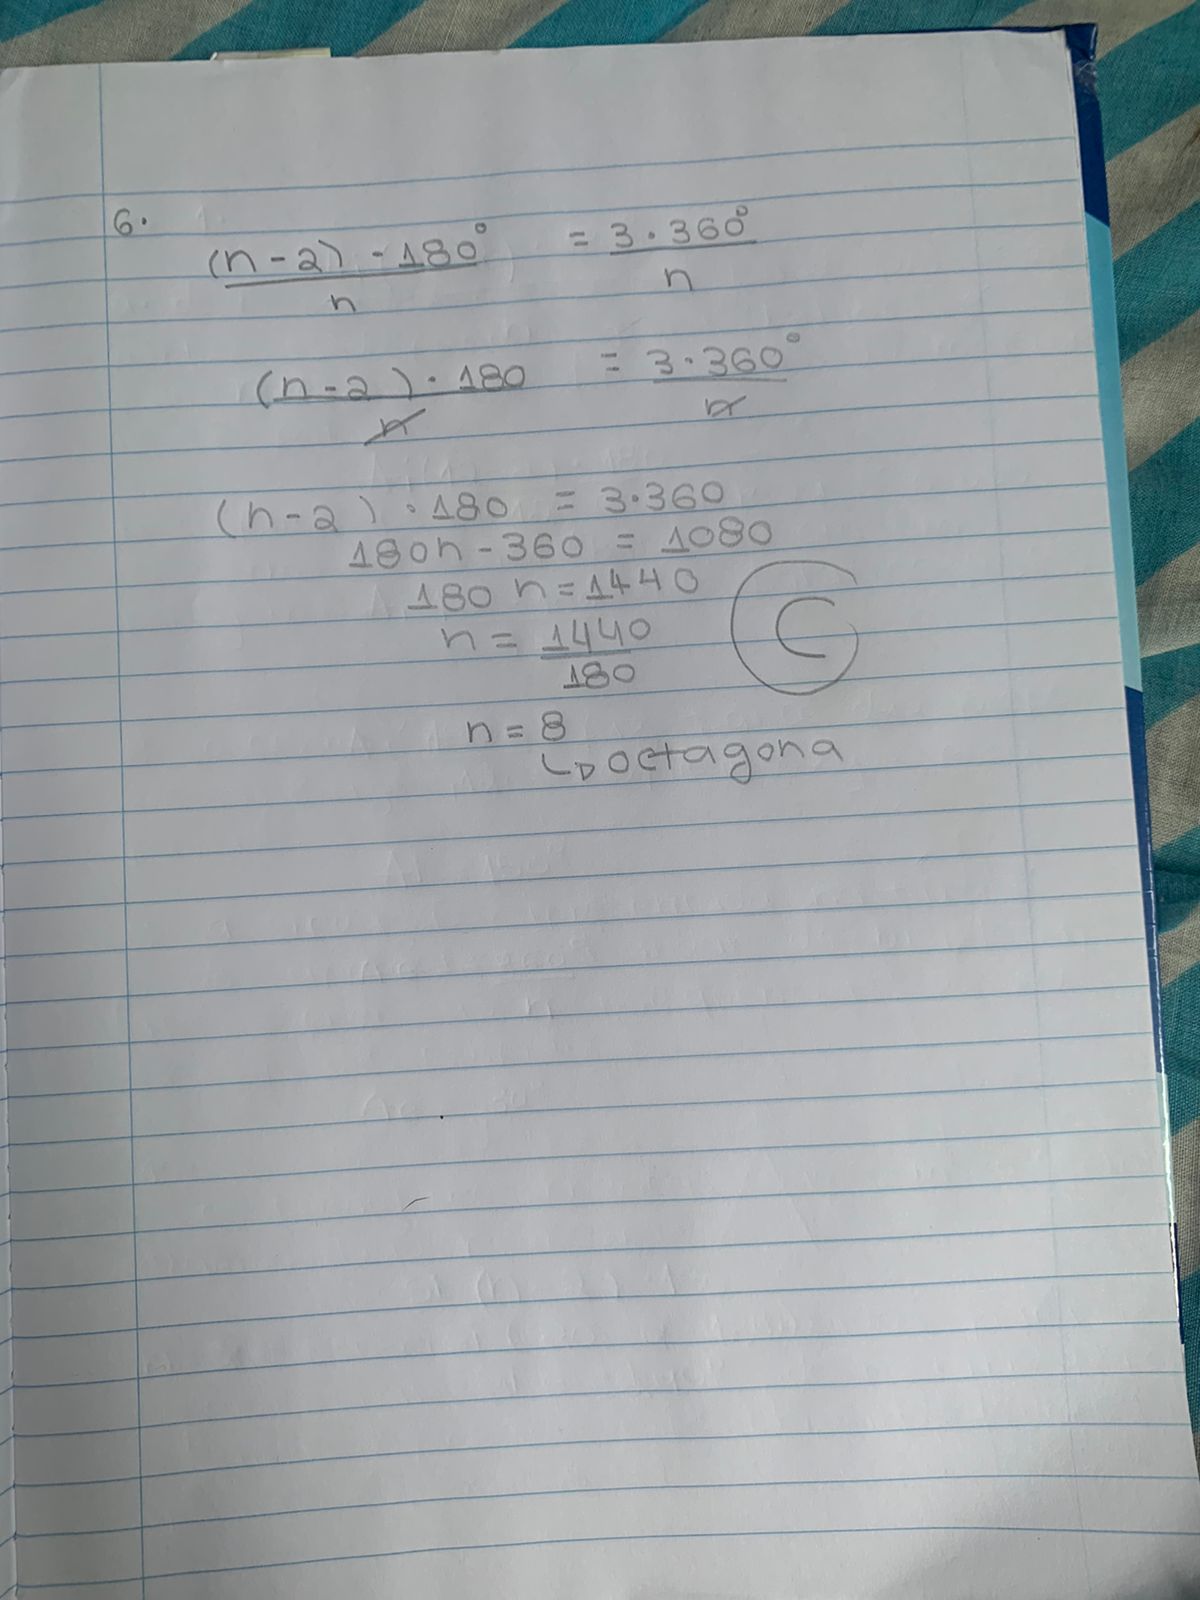 6.
(n-2) · 180° = 3 · 360°
n n
(n-2) · 180 = 3 · 360°
n n
(n-2) · 180 = 3·360
180n - 360 = 1080
180 n = 1440
n = 1440
180
C
n = 8
↳ octagona